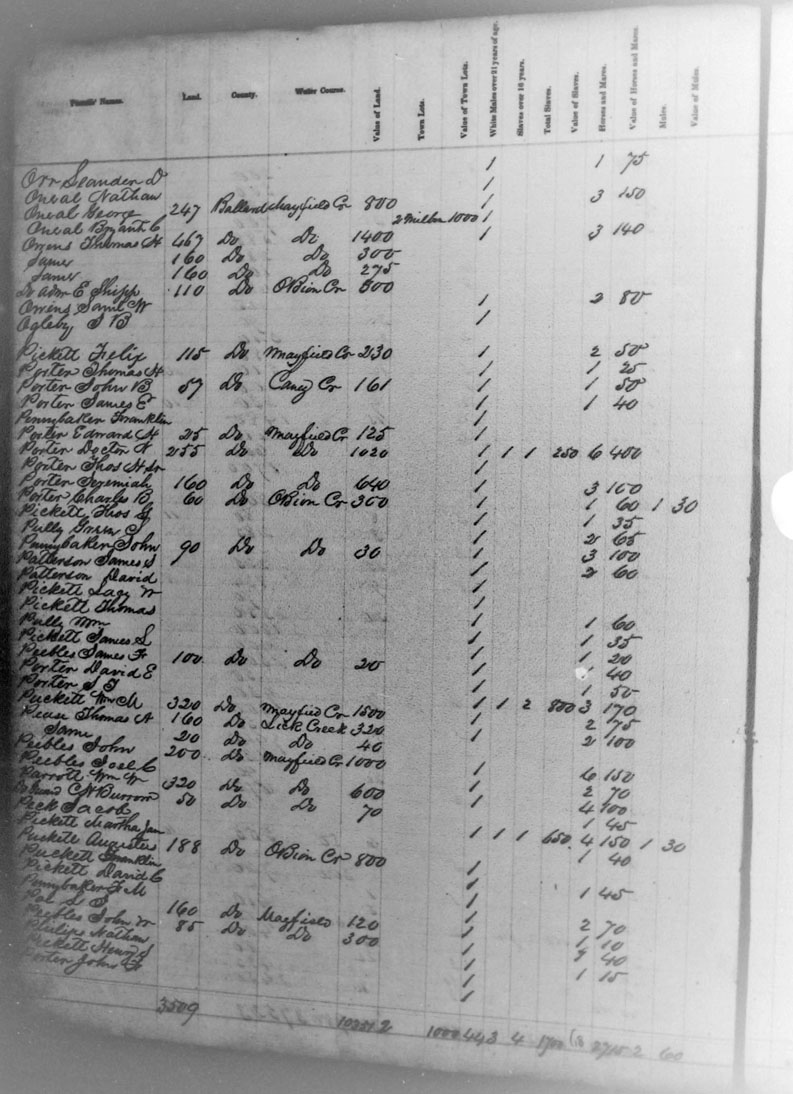 Family Names. Land. County. Water Course. Value of Land. Town Lots. Value of Town Lots. White Males over 21 years of age. Slaves over 16 years. Total Slaves. Value of Slaves. Horses and Mares. Value of Horses and Mares. Mules. Value of Mules.
Orr Leander D 1 1 75
Oneal Nathan 1
Oneal George 247 Ballard Mayfield Cr 800 1 3 150
Oneal Bryant C 2 1000 1
Owens Thomas H 467 Do Do 1400 1 3 140
Same 160 Do Do 300
Same 160 Do Do 275
Do adm E Shipp 110 Do OBion Cr 500
Owens Saml W 1 2 80
Ogleby S B 1
Pickett Felix 115 Do Mayfield Cr 230 1 2 50
Porter Thomas H 1 1 25
Porter John B 57 Do Caney Cr 161 1 1 50
Porter James E 1 1 40
Pennybaker Franklin 1
Porter Edward H 25 Do Mayfield Cr 125 1
Porter Doctor W 255 Do Do 1020 1 1 1 250 6 400
Porter Thos H Sr 1
Porter Jeremiah 160 Do Do 640 1 3 100
Porter Charles B 60 Do OBion Cr 300 1 1 60 1 30
Pickett Thos G 1 1 35
Pully Green 1 2 65
Pennybaker John 90 Do Do 30 1 3 100
Patterson James S 1 2 60
Patterson David 1
Pickett Lacy W 1
Pickett Thomas 1 1 60
Pully Wm 1 1 35
Pickett James S 1 1 20
Peebles James Fr 100 Do Do 20 1 1 40
Porter David E 1 1 50
Porter S T
Puckett Wm M 320 Do Mayfied Cr 1500 1 1 2 800 3 170
Pease Thomas A 160 Do Lick Creek 320 1 2 75
Same 20 Do Do 40
Peebles John 200 Do Mayfied Cr 1000 1 2 100
Peebles Joel C
Parrott Wm W 320 Do Do 600 1 6 150
C W Burrow 50 Do Do 70 1 2 70
Peck Jacob 1 4 100
Pickett Martha Jan 1 45
Puckett Augustus 188 Do OBion Cr 800 1 1 1 650 4 150 1 30
Puckett Franklin 1 1 40
Pickett David C 1
Pennybaker F M 1 1 45
Pal S S 1
Peebles John W 160 Do Mayfield 120 1 2 70
Philips Nathan 85 Do Do 300 1 1 10
Peckett Henry S 1 40
Porter John F 1 1 15
3509 1000 44 3 4 1700 2715 2 60